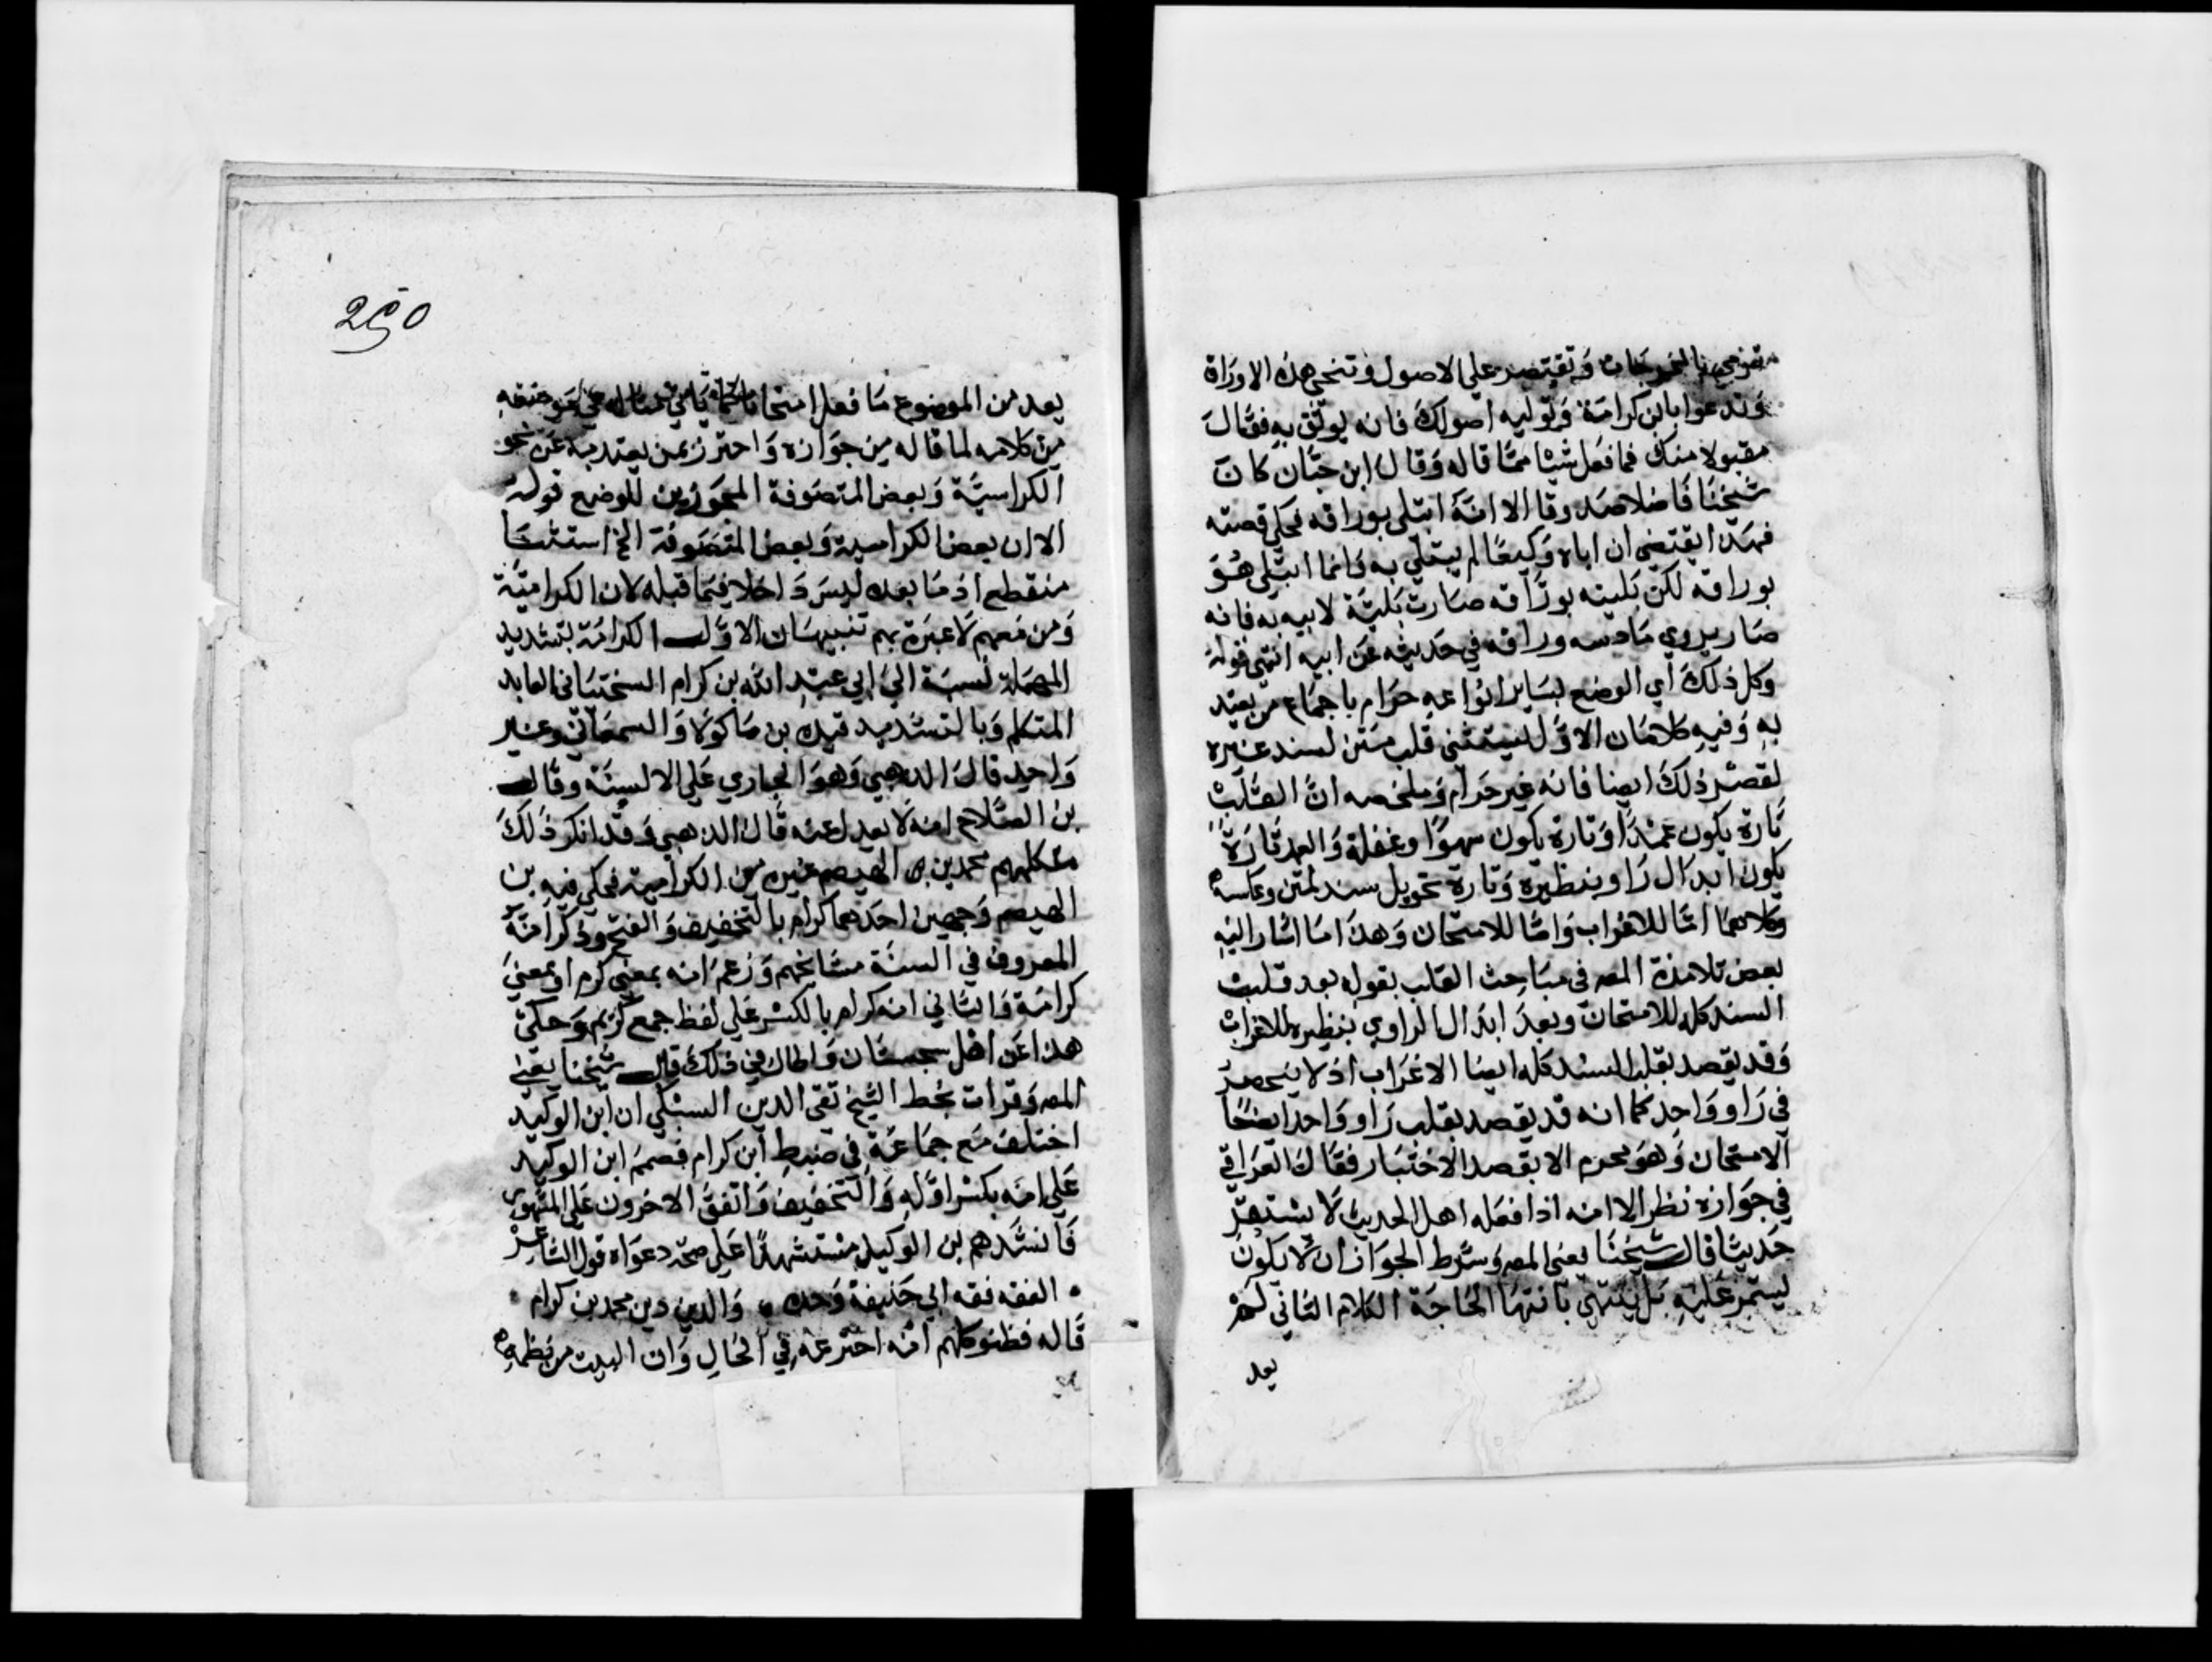 بالمخرجات وتقتصر علي الاصول وتنحي هذه الاوراة
وتدعوا بابن كرامة وتوليه اصولك فانه يوثق به فقال
مقبولا منك فما فعل شيئا مما قاله وقال ابن حبان كان
شيخنا فاضلا صدوقا الا انه ابتلي بوراقه فحكي قصته
فهذا يقتضي ان اباه وكيعا لم يبتلي به وانما ابتلي هو
بوراقه لكن بليته بوراقه صارت بلية لابيه به فانه
صار يروي مادسه وراقه في حديثه عن ابيه انتهي قوله
وكل ذلك أي الوضع بساير انواعه حرام باجماع من يعتد
به وفيه كلامان الاول يستثني قلب متن لسند غيره
لقصد ذلك ايضا فانه غير حرام وملخصه ان القلب
تارة يكون عمدا وتارة يكون سهوا وغفلة والعمد تارة
يكون ابدال راو بنظيره وتارة تحويل سند لمتن وعكسه
وكلاهما اما للاغراب واما للامتحان وهذا ما اشار اليه
بعض تلامذة المصه في مباحث القلب بقوله بعد قلبت
السند كله للامتحان وبعد ابدال الراوي بنظيره للاغراب
وقد يقصد بقلب السند كله ايضا الاغراب اذ لا ينحصر
في راو واحد كما انه قد يقصد بقلب راو واحد ايضا
الامتحان وهو محرم الا بقصد الاختبار فقال العراقي
في جوازه نظر الا انه اذا فعله اهل الحديث لا يستقر
حديثا قال شيخنا يعني المصه وشرط الجواز ان لا يكون
يستمر عليه بل ينتهي بانتها الحاجة الكلام الثاني لم
يعد
250
يعد من الموضوع ما فعل امتحانا
من كلامه لما قاله من جوازه واحترز بمن يعتد به عن نحو
الكراسية وبعض المتصوفة المجوزين للوضع قوله
الا ان بعض الكراسية وبعض المتصوفة الخ استثنا
منقطع اذ ما بعده ليس داخلا فيما قبله لان الكرامية
ومن معهم لا عبرة بهم تنبيهان الاول الكرامة بتشديد
المهملة نسبة الي ابي عبد الله بن كرام السختياني العابد
المتكلم وبالتشديد قيده بن ماكولا والسمعاني وغير
واحد قال الذهبي وهو الجاري علي الالسنة وقال
بن الصلاح انه لا يعدل عنه قال الذهبي وقد انكر ذلك
متكلمهم محمد بن الهيصم غيره من الكرامية فحكي فيه بن
الهيصم وجهين احدهما كرام بالتخفيف والفتح وذكر انه
المعروف في السنة مشايخهم وزعم انه بمعني كرم او بمعني
كرامة والثاني انه كرام بالكسر علي لفظ جمع كريم وحكي
هذا عن اهل سجستان واطال في ذلك قال شيخنا يعني
المصه وقرات بخط الشيخ تقي الدين السبكي ان ابن الوكيد
اختلف مع جماعة في ضبط ابن كرام فصمم ابن الوكيد
علي انه بكسر اوله والتخفيف واتفق الاخرون علي المشهور
فانشدهم بن الوكيل مستشهدا علي صحة دعواه قول الشاعر
الفقه فقه ابي حنيفة وحده والدين دين محمد بن كرام
قاله فظنو كلهم انه اخترعه في الحال وان البيت من نظمه